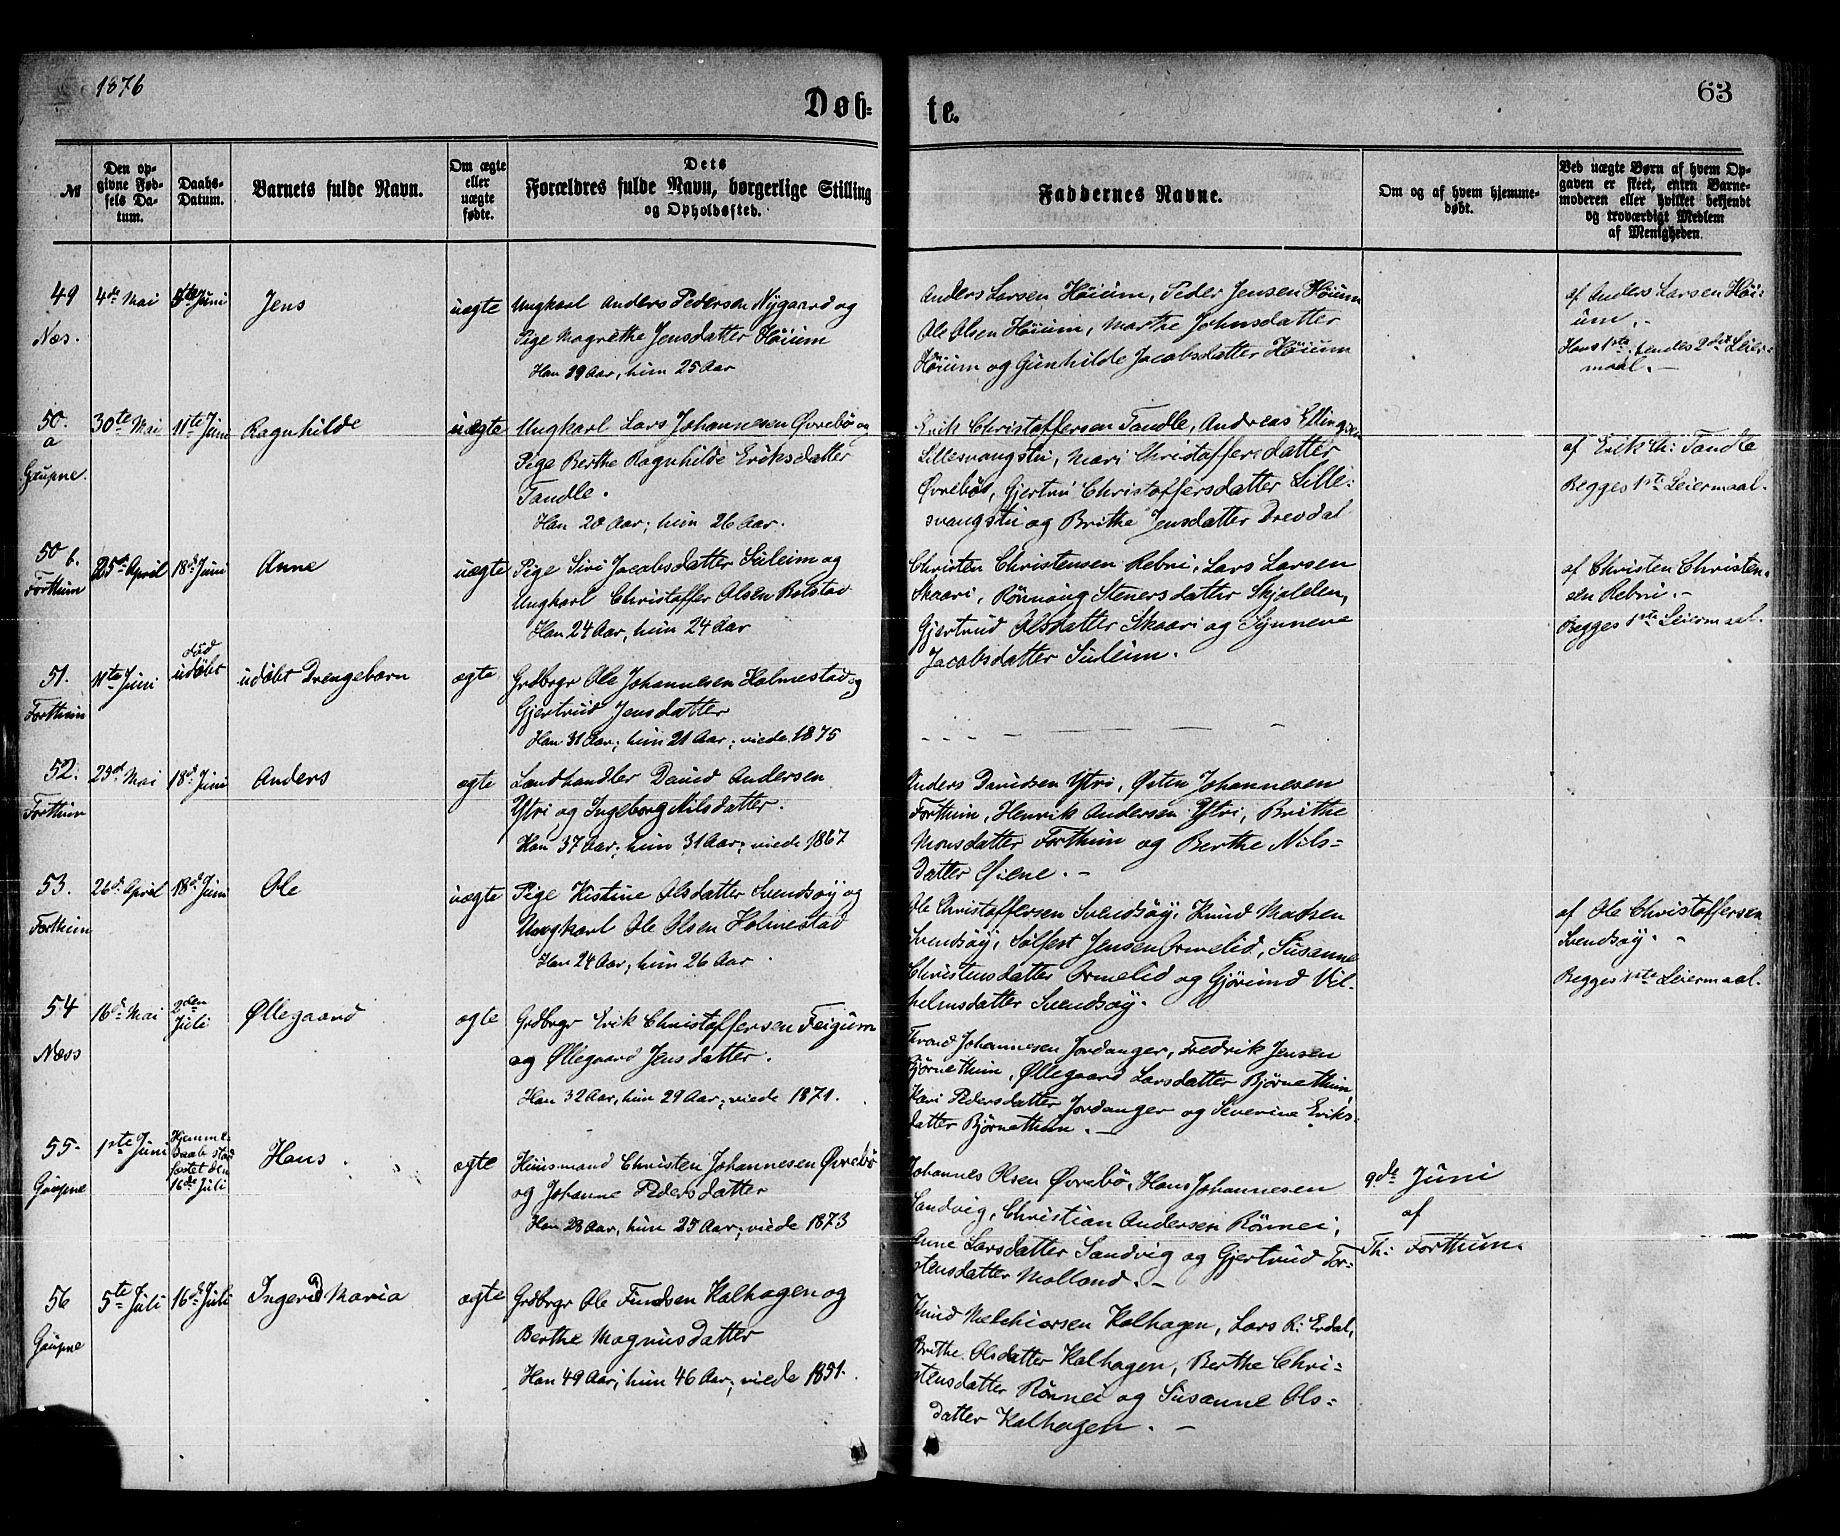 1876
Døb-
te.
63
№
Den op-
givne Fød-
sels Da-
tum.
Daabs-
Datum.
Barnets fulde Navn.
Om ægte
eller
uægte
fødte.
Dets
Forældres fulde Navn, borgerlige Stilling
og Opholdssted.
Faddernes Navne.
Om og af hvem hjemme-
døbt.
Ved uægte Børn af hvem Op-
gaven er skeet, enten Barne-
moderen eller hvilket bekjendt
og troværdigt Medlem
af Menigheden.
49
Næs.
4de Mai
Juni
Jens
uægte
Ungkarl Anders Pedersen Nygaard og
Pige Magrethe Jensdatter Høium
Han 29 Aar, hun 25 Aar
Anders Larsen Høium, Peder Jensen Høium
Ole Olsen Høium, Marthe Johnsdatter
Høium og Gunhilde Jacobsdatter Høium
af Anders Larsen Høi-
um. -
Hans 1ste, hendes 2det Leier-
maal. -
50.
a
Gaupne.
30te Mai
11te Juni
Ragnhilde
uægte
Ungkarl Lars Johannesen Øvrebø og
Pige Berthe Ragnhilde Eriksdatter
Tandle.
Han 20 Aar; hun 26 Aar.
Erik Christoffersen Tandle, Andreas Ellingsen
Lillesvangstu, Mari Christoffersdatter
Øvrebø, Gjertru Christoffersdatter Lille-
svangstu og Brithe Jensdatter Drevdal
af Erik Ch: Tandle
Begges 1ste Leiermaal.
50 b.
Forthun
25de April
18de Juni
Anne
uægte
Pige Siri Jacobsdatter Suleim og
Ungkarl Christoffer Olsen Bolstad
Han 24 Aar, hun 24 Aar
Christen Christensen Rebni, Lars Larsen
Skaari, Rønnaug Stenersdatter Skjolden,
Gjertrud Olsdatter Skaari og Synneve
Jacobsdatter Suleim.
af Christen Christen-
sen Rebni. -
Begges 1ste Leiermaal.
51.
Forthun
11te Juni
død
udøbt
udøbt Drengebarn
ægte
Grdbrgr Ole Johannesen Holmestad og
Gjertrud Jensdatter
Han 31 Aar; hun 21 Aar; viede 1875
52.
Forthun
Mai
18de Juni
Anders
ægte
Landhandler David Andersen
Ytri og Ingeborg Nilsdatter.
Han 37 Aar; hun 31 Aar; viede 1867
Anders Davidsen Ytri, Østen Johannesen
Forthun, Henrik Andersen Ytri, Brithe
Monsdatter Forthun og Berthe Nils-
datter Øiene. -
53.
Forthun
26de April
18de Juni
Ole
uægte
Pige Kistine Olsdatter Svendsøy og
Ungkarl Ole Olsen Holmestad
Han 24 Aar; hun 26 Aar.
Ole Christoffersen Svendsøy, Knud Madsen
Svendsøy, Sølfest Jensen Ormelid, Susanne
Christensdatter Ormelid og Gjørund Vil-
helmsdatter Svendsøy.
af Ole Christoffersen
Svendsøy. -
Begges 1ste Leiermaal.
54
Næss
16de Mai
2den
Juli
Øllegaard
ægte
Grdbrgr Erik Christoffersen Feigum
og Øllegaard Jensdatter.
Han 32 Aar, hun 29 Aar; viede 1871.
Thrond Johannesen Jordanger, Fredrik Jensen
Bjørnethun, Øllegaard Larsdatter Bjørnethun,
Kari Pedersdatter Jordanger og Severine Eriks-
datter Bjørnethun. -
55.
Gaupne
1ste Juni
Hjemme-
Daab stad
fæstet den
16de Juli
Hans
ægte
Huusmand Christen Johannesen Øvrebø
og Johanne Pedersdatter
Han 28 Aar, hun 25 Aar; viede 1873
Johannes Olsen Øvrebø, Hans Johannesen
Sandvig, Christian Andersen Rønnei,
Anne Larsdatter Sandvig og Gjertrud Tor-
stensdatter Molland. -
9de Juni
af
Th: Forthun.
56
Gaupne
5te Juli
16de Juli
Ingerid Maria
ægte
Grdbrgr Ole Knudsen Kalhagen og
Berthe Magnusdatter
Han 49 Aar; hun 46 Aar; viede 1851.
Knud Melchiorsen Kalhagen, Lars R: Erdal,
Brithe Olsdatter Kalhagen, Berthe Chri-
stensdatter Rønnei og Susanne Ols-
datter Kalhagen. -